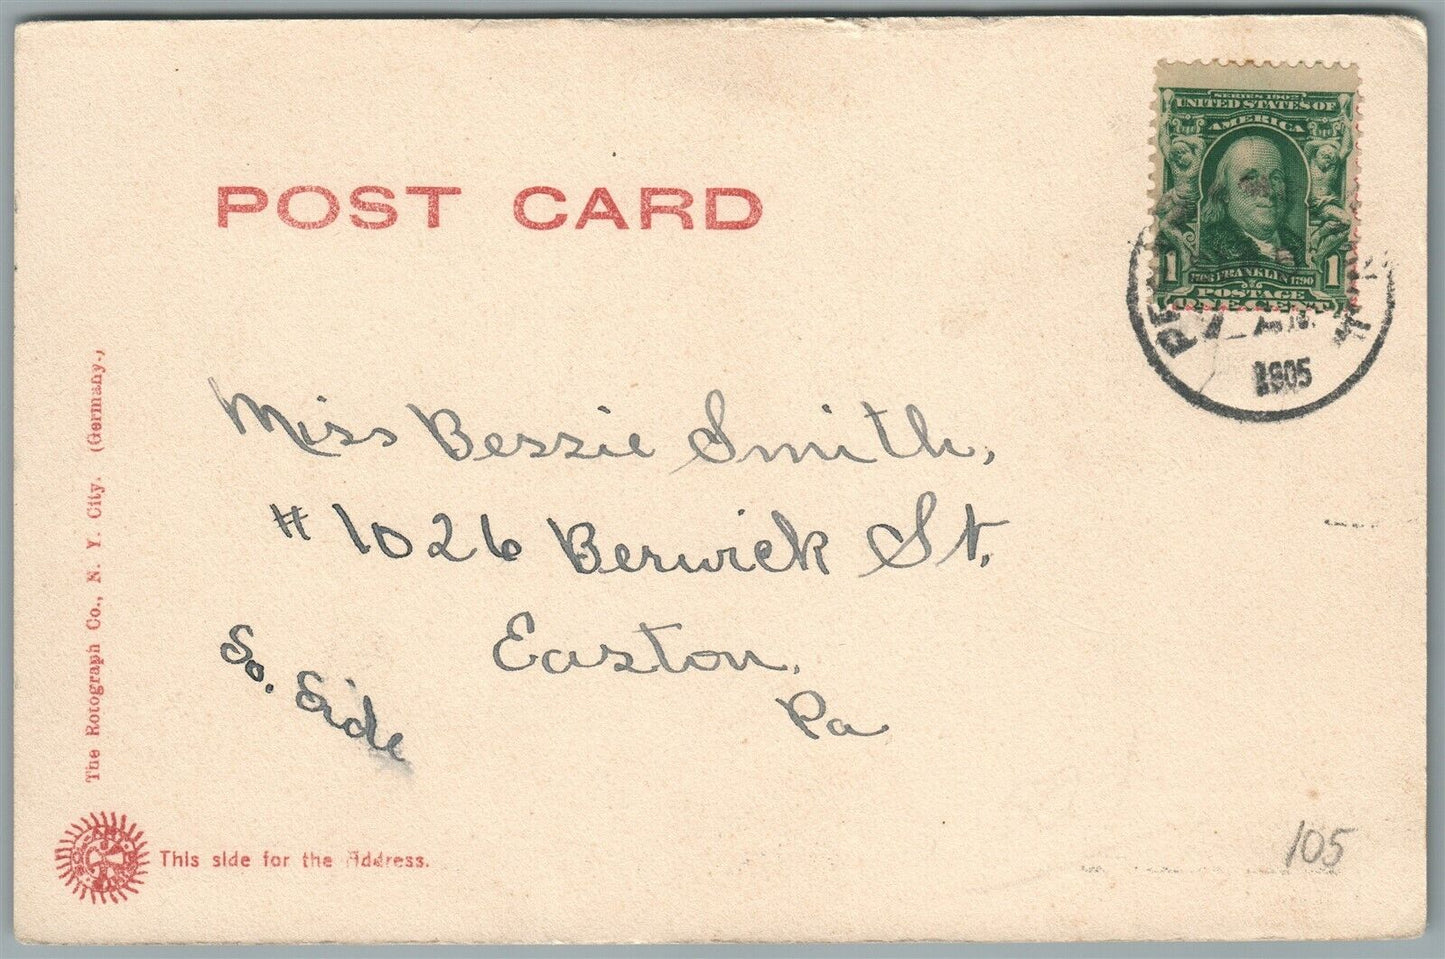 POST CARD
SERIES 1902
UNITED STATES OF
AMERICA
1 1708 FRANKLIN 1790 1
POSTAGE
ONE CENT
1905
Miss Bessie Smith,
# 1026 Berwick St.
Easton,
Pa
So. Side
The Rotograph Co., N. Y. City. (Germany.)
This side for the Address.
105